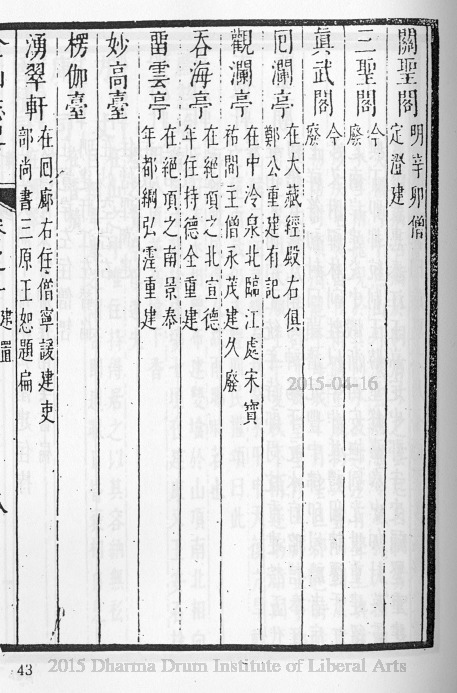 關聖閣 明辛卯僧定澄建
三聖閣 今廢
真武閣 今廢
回瀾亭 在大藏經殿右俱鄭公重建有記
觀瀾亭 在中泠泉北臨江處宋寶祐閣主僧永茂建久廢
吞海亭 在絕頂之北宣德年住持德全重建
留雲亭 在絕項之南景泰年都綱弘霔重建
妙高臺
楞伽臺
湧翠軒 在回廊右住僧寧諼建吏部尚書三原王恕題扁
建置
八
43
2015-04-16
2015 Dharma Drum Institute of Liberal Arts